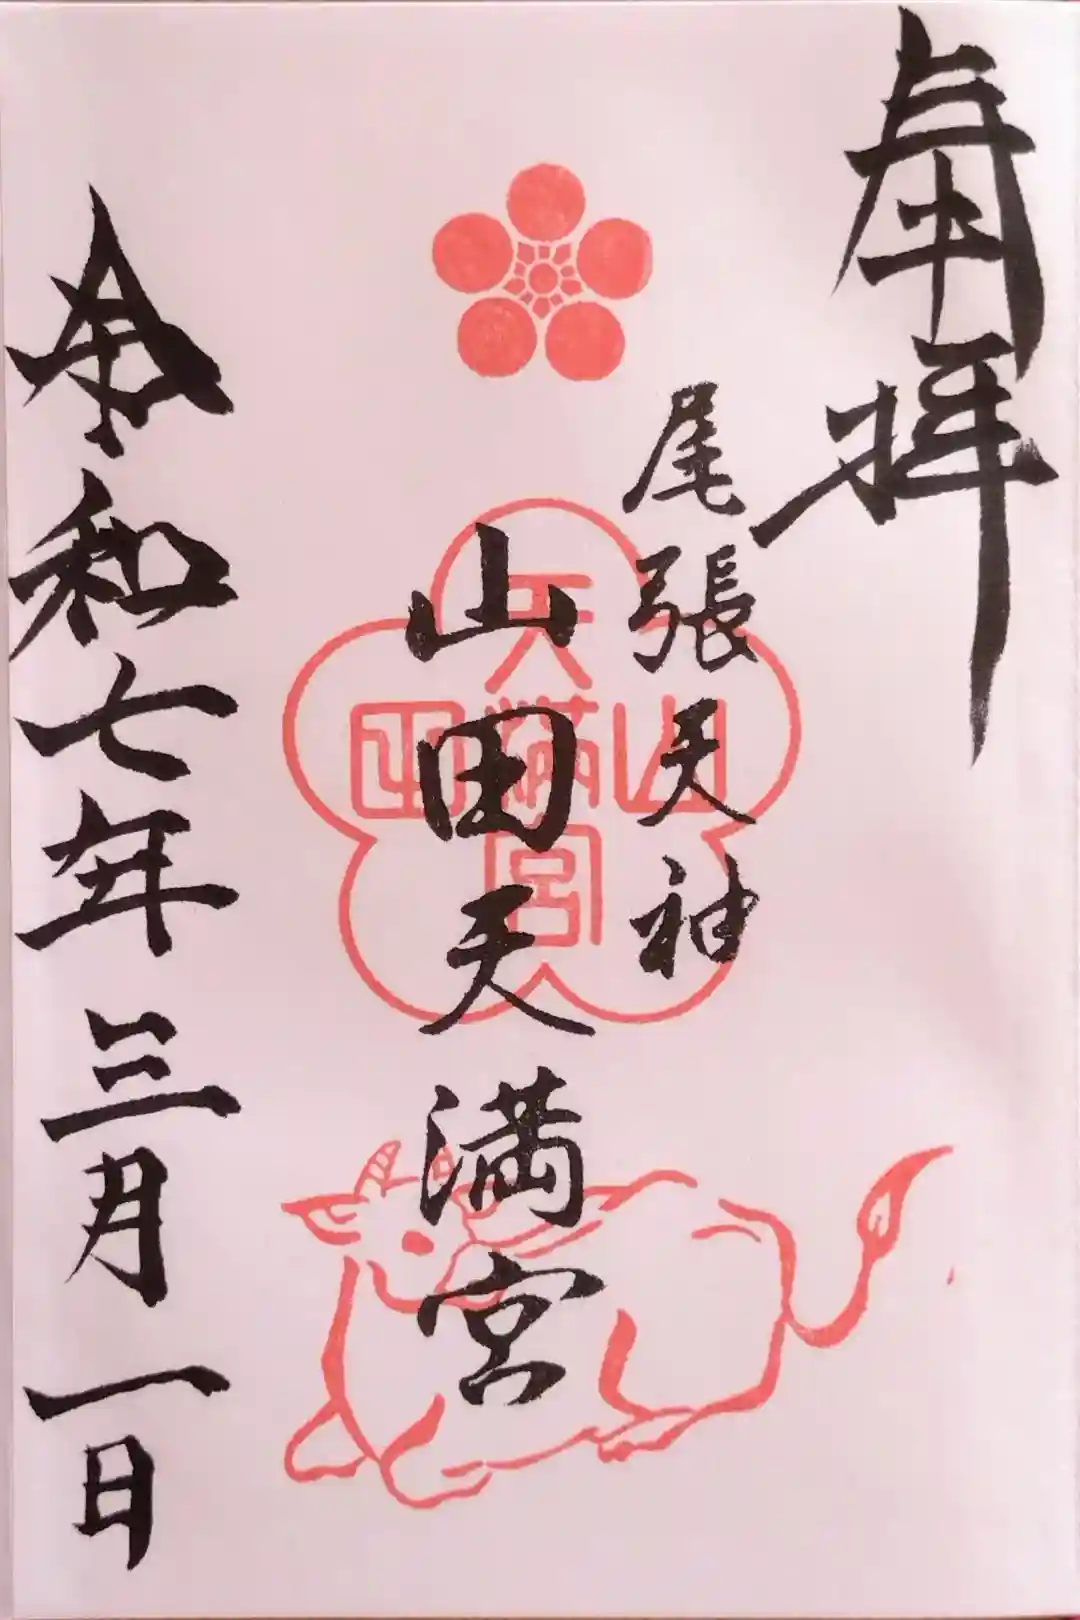 奉拝
尾張天神
山田天満宮
山田天満宮
令和七年三月一日